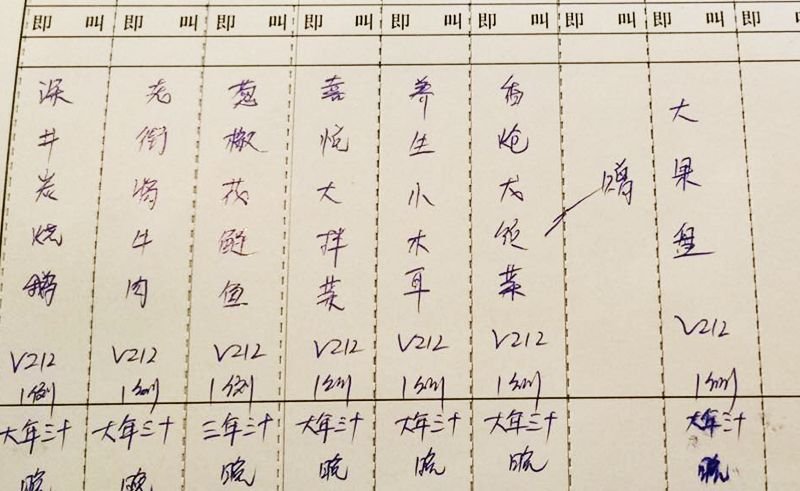 即 叫 即 叫 即 叫 即 叫 即 叫 即 叫 即 叫 即 叫 即
深井炭烧鹅
V212
1例
大年三十
晚
老街牛肉
V212
1例
大年三十
晚
葱椒鲢鱼
V212
1例
三年三十
晚
喜悦大拌菜
V212
1例
大年三十
晚
养生小木耳
V212
1例
大年三十
晚
炝菜
V212
1例
大年三十
晚
赠
大果盘
V212
1例
大年三十
晚